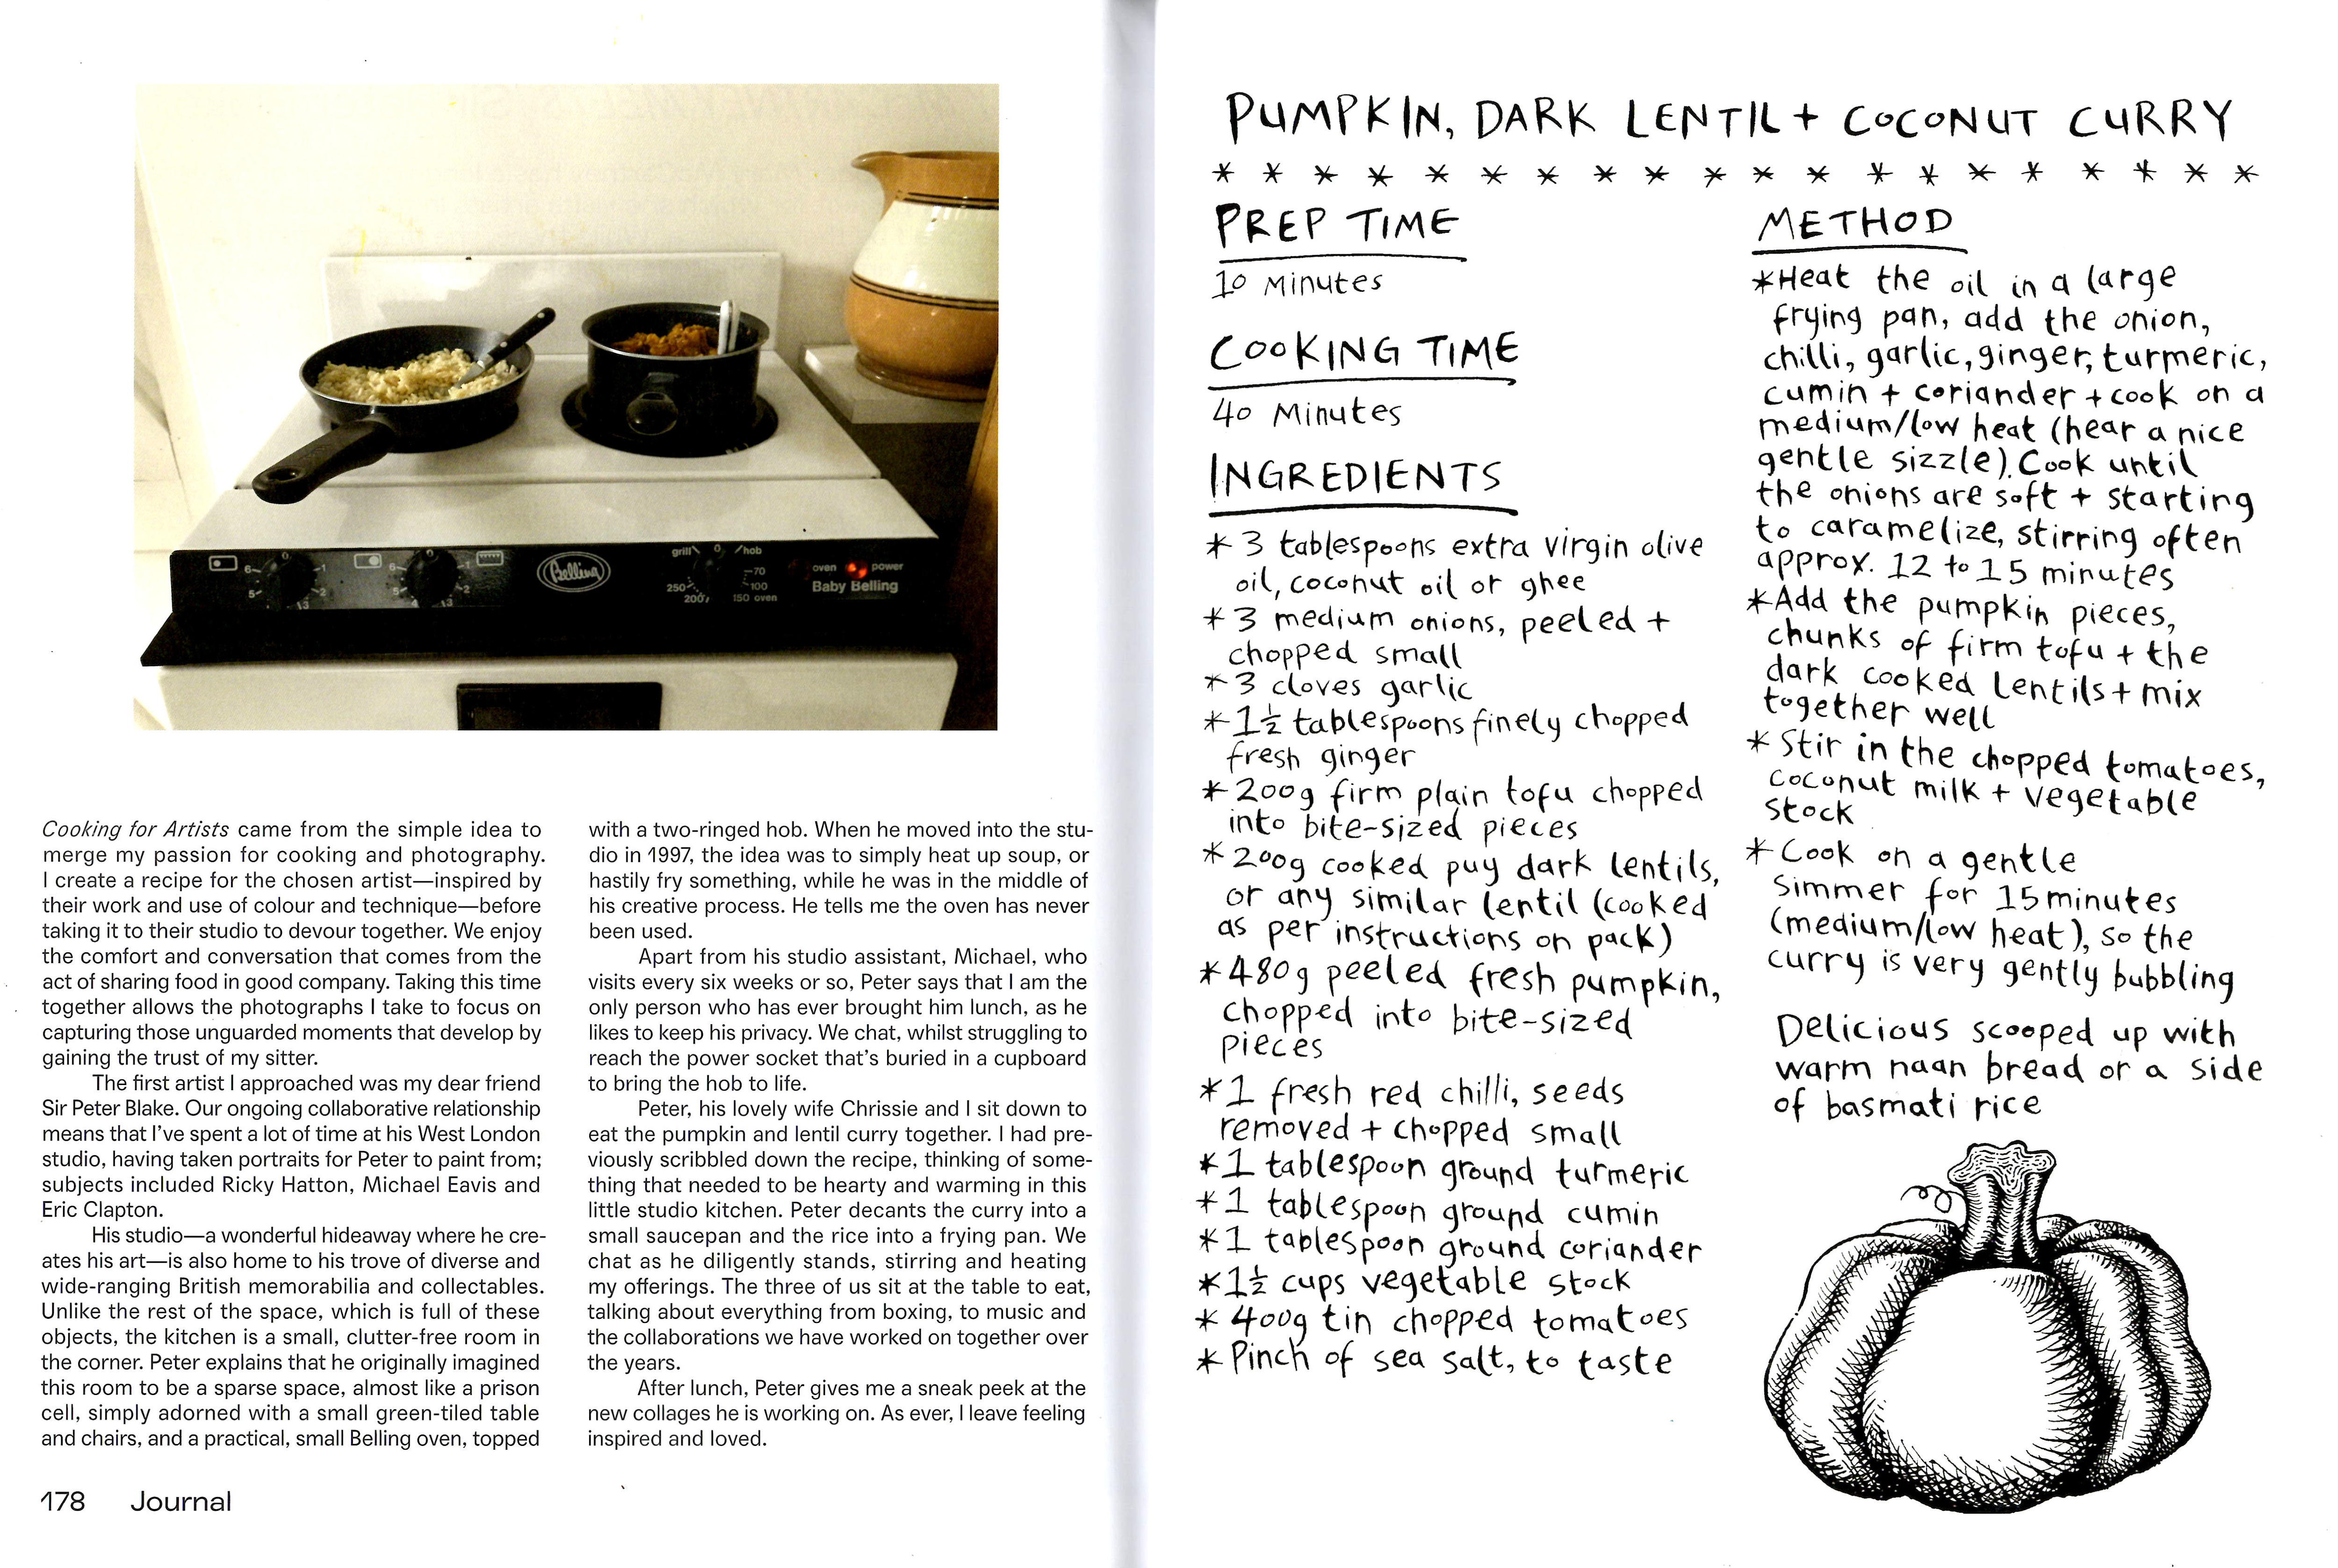 grill 0 hob
6 0 1
5 2
4 3
6 0 1
5 2
4 3
Belling
70
250 100
200 150 oven
oven power
Baby Belling
Cooking for Artists came from the simple idea to
merge my passion for cooking and photography.
I create a recipe for the chosen artist—inspired by
their work and use of colour and technique—before
taking it to their studio to devour together. We enjoy
the comfort and conversation that comes from the
act of sharing food in good company. Taking this time
together allows the photographs I take to focus on
capturing those unguarded moments that develop by
gaining the trust of my sitter.
The first artist I approached was my dear friend
Sir Peter Blake. Our ongoing collaborative relationship
means that I've spent a lot of time at his West London
studio, having taken portraits for Peter to paint from;
subjects included Ricky Hatton, Michael Eavis and
Eric Clapton.
His studio—a wonderful hideaway where he cre-
ates his art—is also home to his trove of diverse and
wide-ranging British memorabilia and collectables.
Unlike the rest of the space, which is full of these
objects, the kitchen is a small, clutter-free room in
the corner. Peter explains that he originally imagined
this room to be a sparse space, almost like a prison
cell, simply adorned with a small green-tiled table
and chairs, and a practical, small Belling oven, topped
with a two-ringed hob. When he moved into the stu-
dio in 1997, the idea was to simply heat up soup, or
hastily fry something, while he was in the middle of
his creative process. He tells me the oven has never
been used.
Apart from his studio assistant, Michael, who
visits every six weeks or so, Peter says that I am the
only person who has ever brought him lunch, as he
likes to keep his privacy. We chat, whilst struggling to
reach the power socket that's buried in a cupboard
to bring the hob to life.
Peter, his lovely wife Chrissie and I sit down to
eat the pumpkin and lentil curry together. I had pre-
viously scribbled down the recipe, thinking of some-
thing that needed to be hearty and warming in this
little studio kitchen. Peter decants the curry into a
small saucepan and the rice into a frying pan. We
chat as he diligently stands, stirring and heating
my offerings. The three of us sit at the table to eat,
talking about everything from boxing, to music and
the collaborations we have worked on together over
the years.
After lunch, Peter gives me a sneak peek at the
new collages he is working on. As ever, I leave feeling
inspired and loved.
178 Journal
PUMPKIN, DARK LENTIL + COCONUT CURRY
* * * * * * * * * * * * * * * * * * * *
PREP TIME
10 Minutes
COOKING TIME
40 Minutes
INGREDIENTS
* 3 tablespoons extra virgin olive
oil, coconut oil or ghee
* 3 medium onions, peeled +
chopped small
* 3 cloves garlic
* 1½ tablespoons finely chopped
fresh ginger
* 200g firm plain tofu chopped
into bite-sized pieces
* 200g cooked puy dark lentils,
or any similar lentil (cooked
as per instructions on pack)
* 480g peeled fresh pumpkin,
chopped into bite-sized
pieces
* 1 fresh red chilli, seeds
removed + chopped small
* 1 tablespoon ground turmeric
* 1 tablespoon ground cumin
* 1 tablespoon ground coriander
* 1½ cups vegetable stock
* 400g tin chopped tomatoes
* Pinch of sea salt, to taste
METHOD
* Heat the oil in a large
frying pan, add the onion,
chilli, garlic, ginger, turmeric,
cumin + coriander + cook on a
medium/low heat (hear a nice
gentle sizzle). Cook until
the onions are soft + starting
to caramelize, stirring often
approx. 12 to 15 minutes
* Add the pumpkin pieces,
chunks of firm tofu + the
dark cooked lentils + mix
together well
* Stir in the chopped tomatoes,
coconut milk + vegetable
stock
* Cook on a gentle
simmer for 15 minutes
(medium/low heat), so the
curry is very gently bubbling
Delicious scooped up with
warm naan bread or a side
of basmati rice